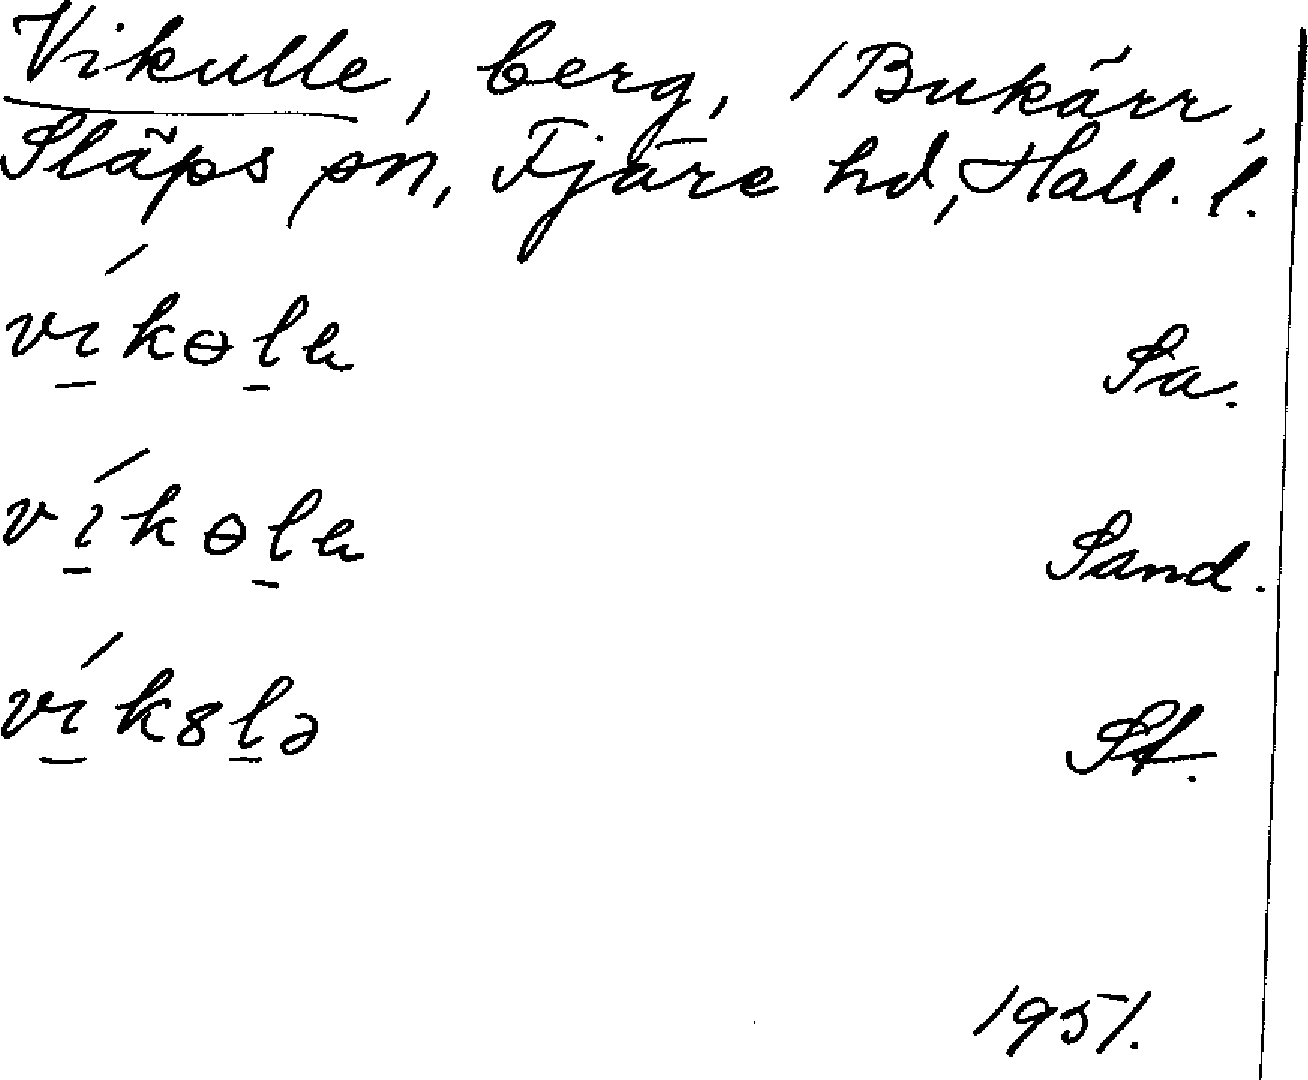 Vikulle, berg, /Bukärr,
Släps sn, Fjäre hd, Hall. l.
víkɵlɐ Sa.
víkɵlɐ Sand.
vík8lə St.
1951.